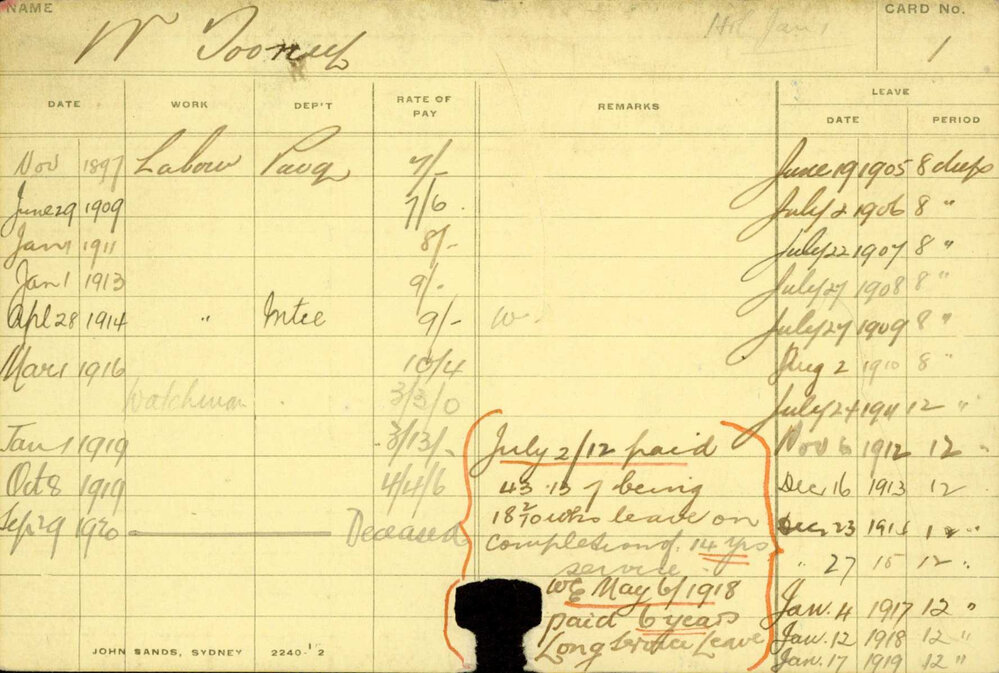 NAME W Tooney CARD No. 1
DATE WORK DEP'T RATE OF PAY REMARKS LEAVE
DATE PERIOD
Nov 1897 Labour 7/- June 19 1905 8 days
June 29 1909 7/6 July 2 1906 8 "
Jan 1 1911 8/- July 22 1907 8 "
Jan 1 1913 9/- July 27 1908 8 "
Apl 28 1914 " Mtce 9/- W July 27 1909 8 "
Mar 1 1916 10/4 Aug 2 1910 8 "
Watchman 3/3/0 July 24 1911 12 "
Jan 1 1919 3/13/- July 2/12 paid Nov 6 1912 12 "
Oct 8 1919 4/4/6 being Dec 16 1913 12 "
Sep 29 1920 Deceased 18 2/10 wks leave on Dec 23 1914 12 "
completion of 14 yrs " 27 15 12 "
service
WE May 6/1918 Jan. 4 1917 12 "
paid 6 years Jan. 12 1918 12 "
Long Service Leave Jan. 17 1919 12 "
JOHN SANDS, SYDNEY 2240-1/2